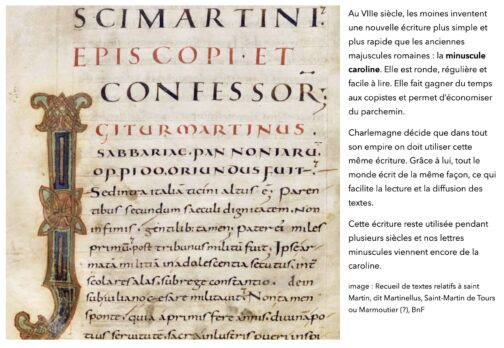 SCIMARTINI·
EPISCOPI·ET
CONFESSOR;
IGITURMARTINUS·
SABBARIAE·PANNONIARŪ
OPPIDO,ORIUNDUSFUIT·
Sedinitalia ticini altus ē· Paren
tibus secundum saeculi dignitatem, Non
infimis, gentilib; tamen, pater ei miles
primū, post tribunus militū fuit, Ipsear
matā inadulescentia secutus· inter
scolares alas, subrege constantio, dein
subiuliano cesare militauit, Nontamen
sponte, quia aprimis fere annis, diuināpo
tius seruitutē, sacra inlustris pueri inspi
Au VIIIe siècle, les moines inventent
une nouvelle écriture plus simple et
plus rapide que les anciennes
majuscules romaines : la minuscule
caroline. Elle est ronde, régulière et
facile à lire. Elle fait gagner du temps
aux copistes et permet d'économiser
du parchemin.
Charlemagne décide que dans tout
son empire on doit utiliser cette
même écriture. Grâce à lui, tout le
monde écrit de la même façon, ce qui
facilite la lecture et la diffusion des
textes.
Cette écriture reste utilisée pendant
plusieurs siècles et nos lettres
minuscules viennent encore de la
caroline.
image : Recueil de textes relatifs à saint
Martin, dit Martinellus, Saint-Martin de Tours
ou Marmoutier (?), BnF